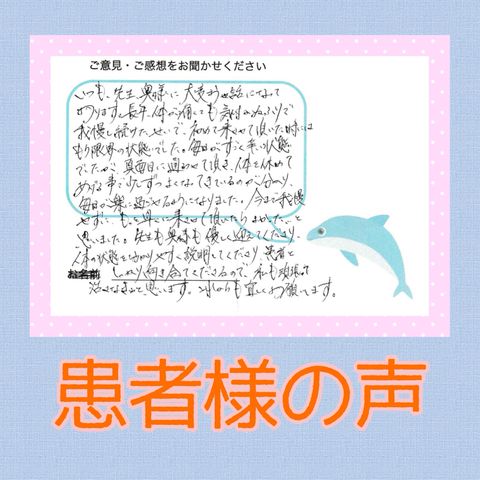 ご意見・ご感想をお聞かせください
いつも、先生、奥様に大変お世話になって
おります。長年、体が痛くても気付かぬふりで
我慢し続けたせいで、初めて来させて頂いた時には
もう限界の状態でした。毎日がすごく辛い状態
でしたが、真面目に通わせて頂き、体を休めて
あげる事で少しずつよくなってきているのが分かり、
毎日が楽に過ごせるようになりました。今まで我慢
せずに、もっと早くに来させて頂いたらよかった、と
思いました。先生も奥様も優しく迎えてくださり、
体の状態を分かりやすく説明してくださり、患者と
お名前
しっかり向き合ってくださるので、私も頑張って
治さなきゃと思います。これからも宜しくお願いします。
患者様の声